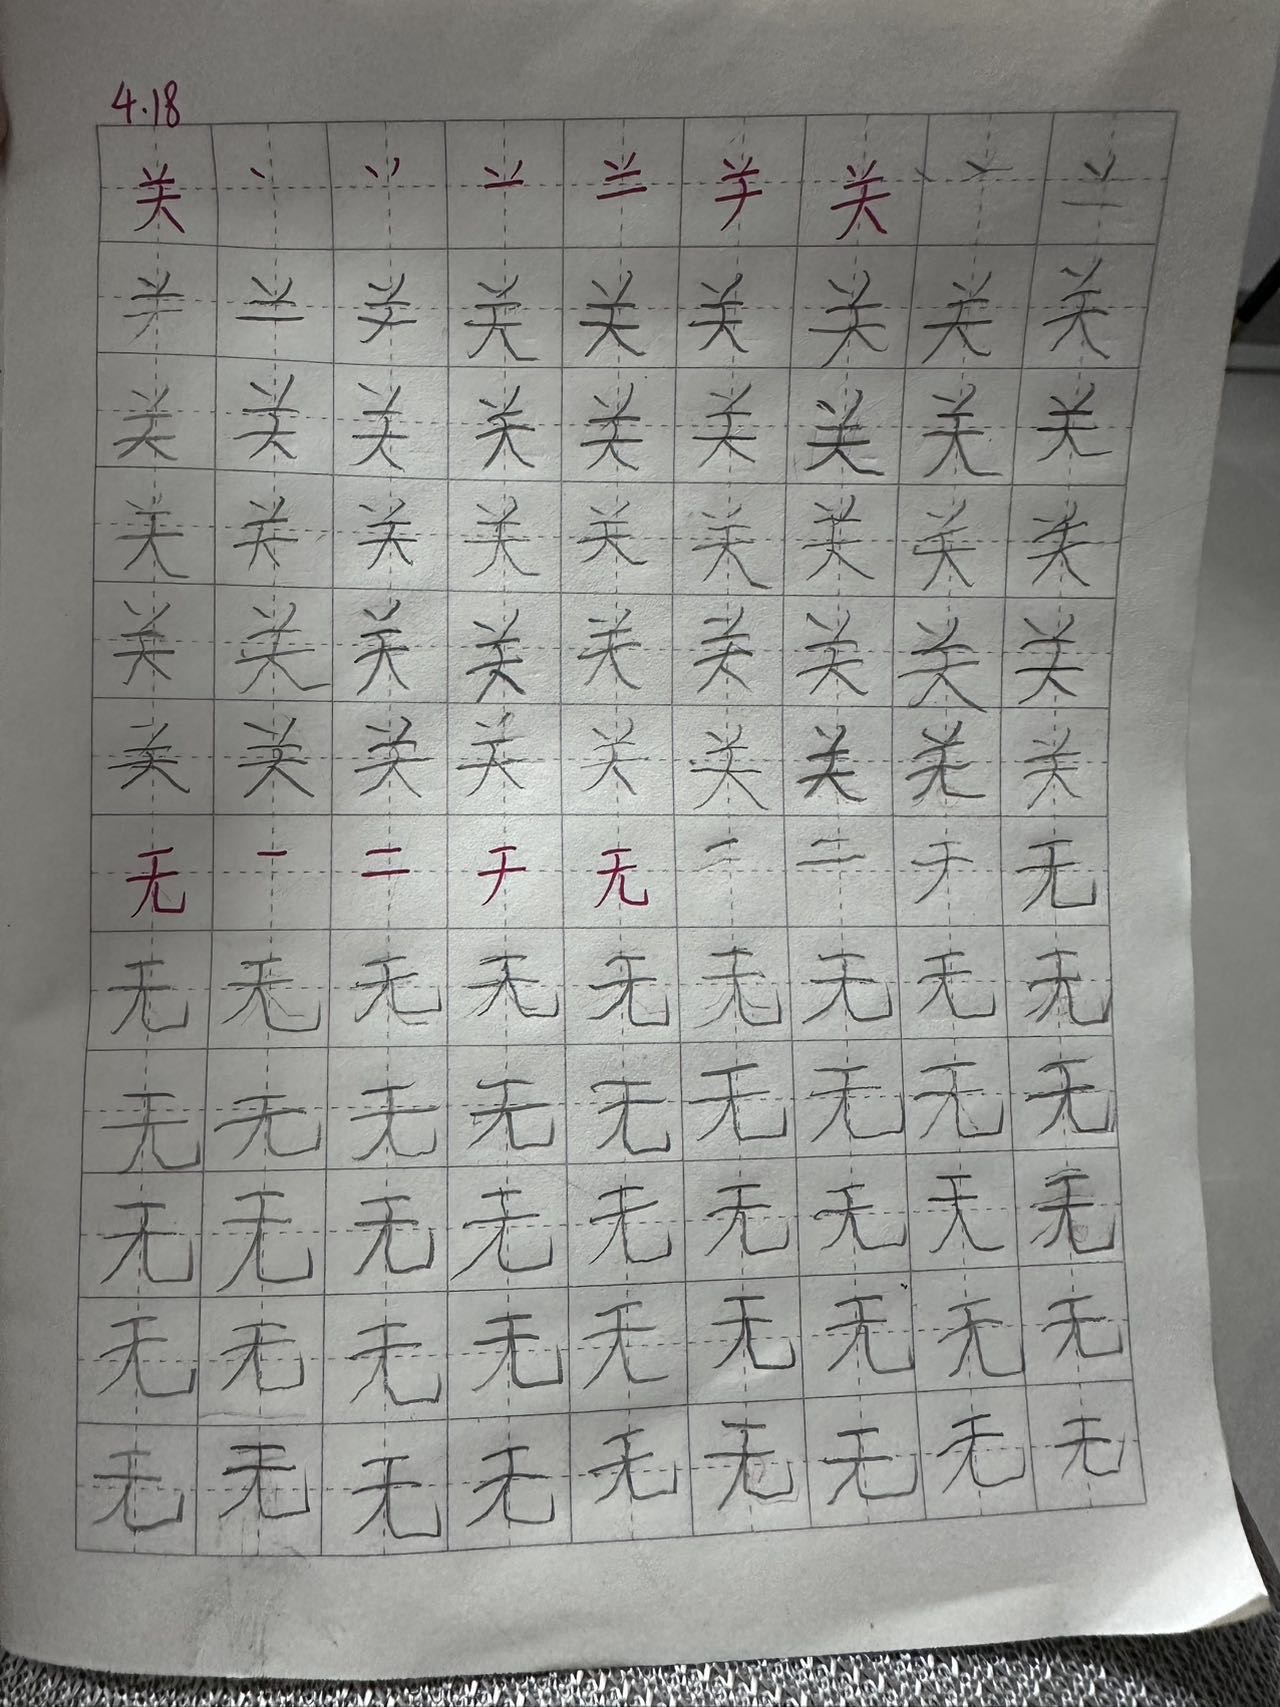 4.18
关 丶 丷 䒑 关 关
关 关 关 关 关 关
关 关 关 关 关 关 关 关 关
关 关 关 关 关 关 关 关 关
关 关 关 关 关 关 关 关 关
关 关 关 关 关 关 关 关 关
无 一 二 𠂇 无 二 无
无 无 无 无 无 无 无 无 无
无 无 无 无 无 无 无 无 无
无 无 无 无 无 无 无 无 无
无 无 无 无 无 无 无 无 无
无 无 无 无 无 无 无 无 无